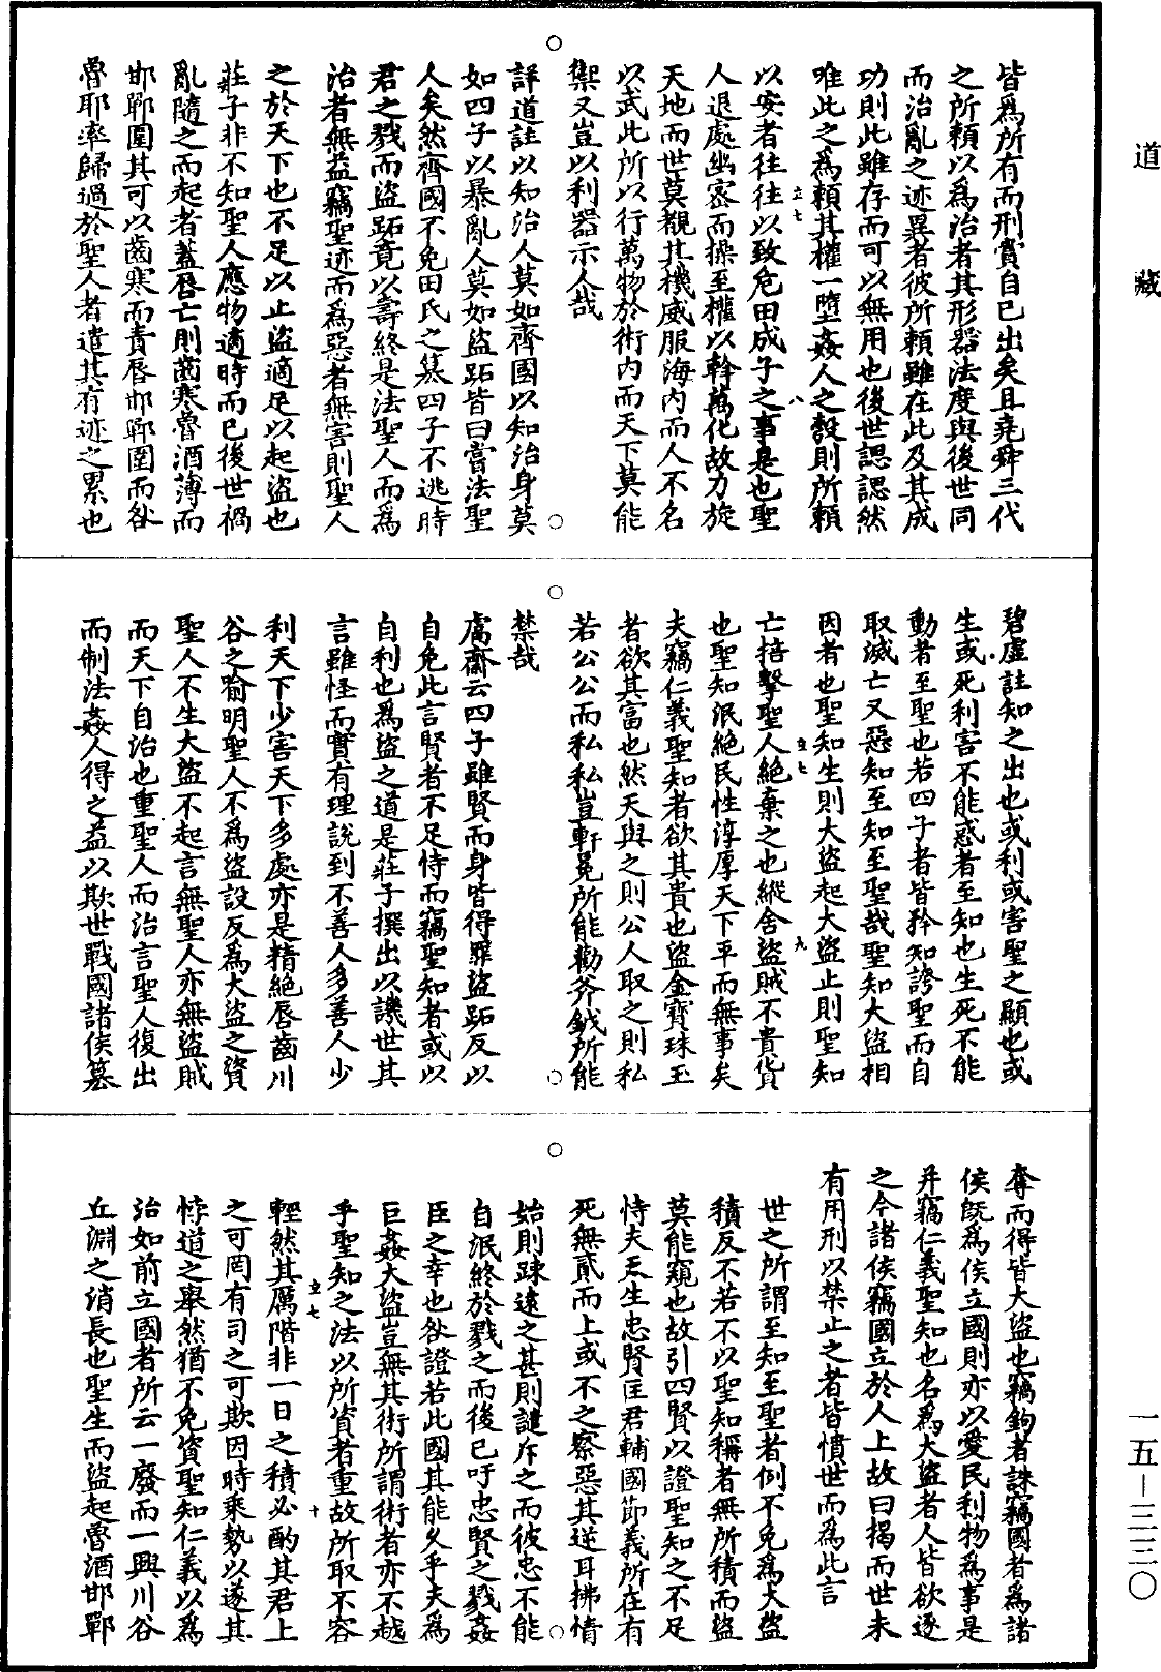 道藏
皆爲所有而刑賞自已出矣且堯舜三代
之所賴以爲治者其形器法度與後世同
而治亂之迹異者彼所賴雖在此及其成
功則此雖存而可以無用也後世認認然
唯此之爲賴其權一墮姦人之彀則所賴
立七
八
以安者往往以致危田成子之事是也聖
人退處幽密而操至權以斡萬化故力旋
天地而世莫覩其機威服海内而人不名
以武此所以行萬物於術内而天下莫能
禦又豈以利器示人哉
詳道註以知治人莫如齊國以知治身莫
如四子以暴亂人莫如盜跖皆曰嘗法聖
人矣然齊國不免田氏之簒四子不逃時
君之戮而盜跖竟以壽終是法聖人而爲
治者無益竊聖迹而爲惡者無害則聖人
之於天下也不足以止盜適足以起盜也
莊子非不知聖人應物適時而已後世禍
亂隨之而起者蓋唇亡則齒寒魯酒薄而
邯鄲圍其可以齒寒而責唇邯鄲圍而咎
魯耶率歸過於聖人者遣其有迹之累也
碧虛註知之出也或利或害聖之顯也或
生或死利害不能惑者至知也生死不能
動者至聖也若四子者皆矜知誇聖而自
取滅亡又惡知至知至聖哉聖知大盜相
因者也聖知生則大盜起大盜止則聖知
立七
九
亡掊擊聖人絶棄之也縱舍盜賊不貴貨
也聖知泯絶民性淳厚天下平而無事矣
夫竊仁義聖知者欲其貴也盜金寶珠玉
者欲其富也然天與之則公人取之則私
若公公而私私豈軒冕所能勸斧鉞所能
禁哉
鬳齋云四子雖賢而身皆得罪盜跖反以
自免此言賢者不足恃而竊聖知者或以
自利也爲盜之道是莊子撰出以譏世其
言雖怪而實有理說到不善人多善人少
利天下少害天下多處亦是精絶唇齒川
谷之喻明聖人不爲盜設反爲大盜之資
聖人不生大盜不起言無聖人亦無盜賊
而天下自治也重聖人而治言聖人復出
而制法姦人得之益以欺世戰國諸侯簒
奪而得皆大盜也竊鉤者誅竊國者爲諸
侯旣爲侯立國則亦以愛民利物爲事是
并竊仁義聖知也名爲大盜者人皆欲逐
之今諸侯竊國立於人上故曰揭而世未
有用刑以禁止之者皆憤世而爲此言
世之所謂至知至聖者例不免爲大盜
積反不若不以聖知稱者無所積而盜
莫能窺也故引四賢以證聖知之不足
恃夫天生忠賢匡君輔國節義所在有
死無貳而上或不之察惡其逆耳拂情
始則踈遠之甚則譴斥之而彼忠不能
自泯終於戮之而後已吁忠賢之戮姦
臣之幸也咎證若此國其能久乎夫爲
巨姦大盜豈無其術所謂術者亦不越
乎聖知之法以所資者重故所取不容
立七
十
輕然其厲階非一日之積必酌其君上
之可罔有司之可欺因時乘勢以遂其
悖道之舉然猶不免資聖知仁義以爲
治如前立國者所云一廢而一興川谷
丘淵之消長也聖生而盜起魯酒邯鄲
一五－三二〇